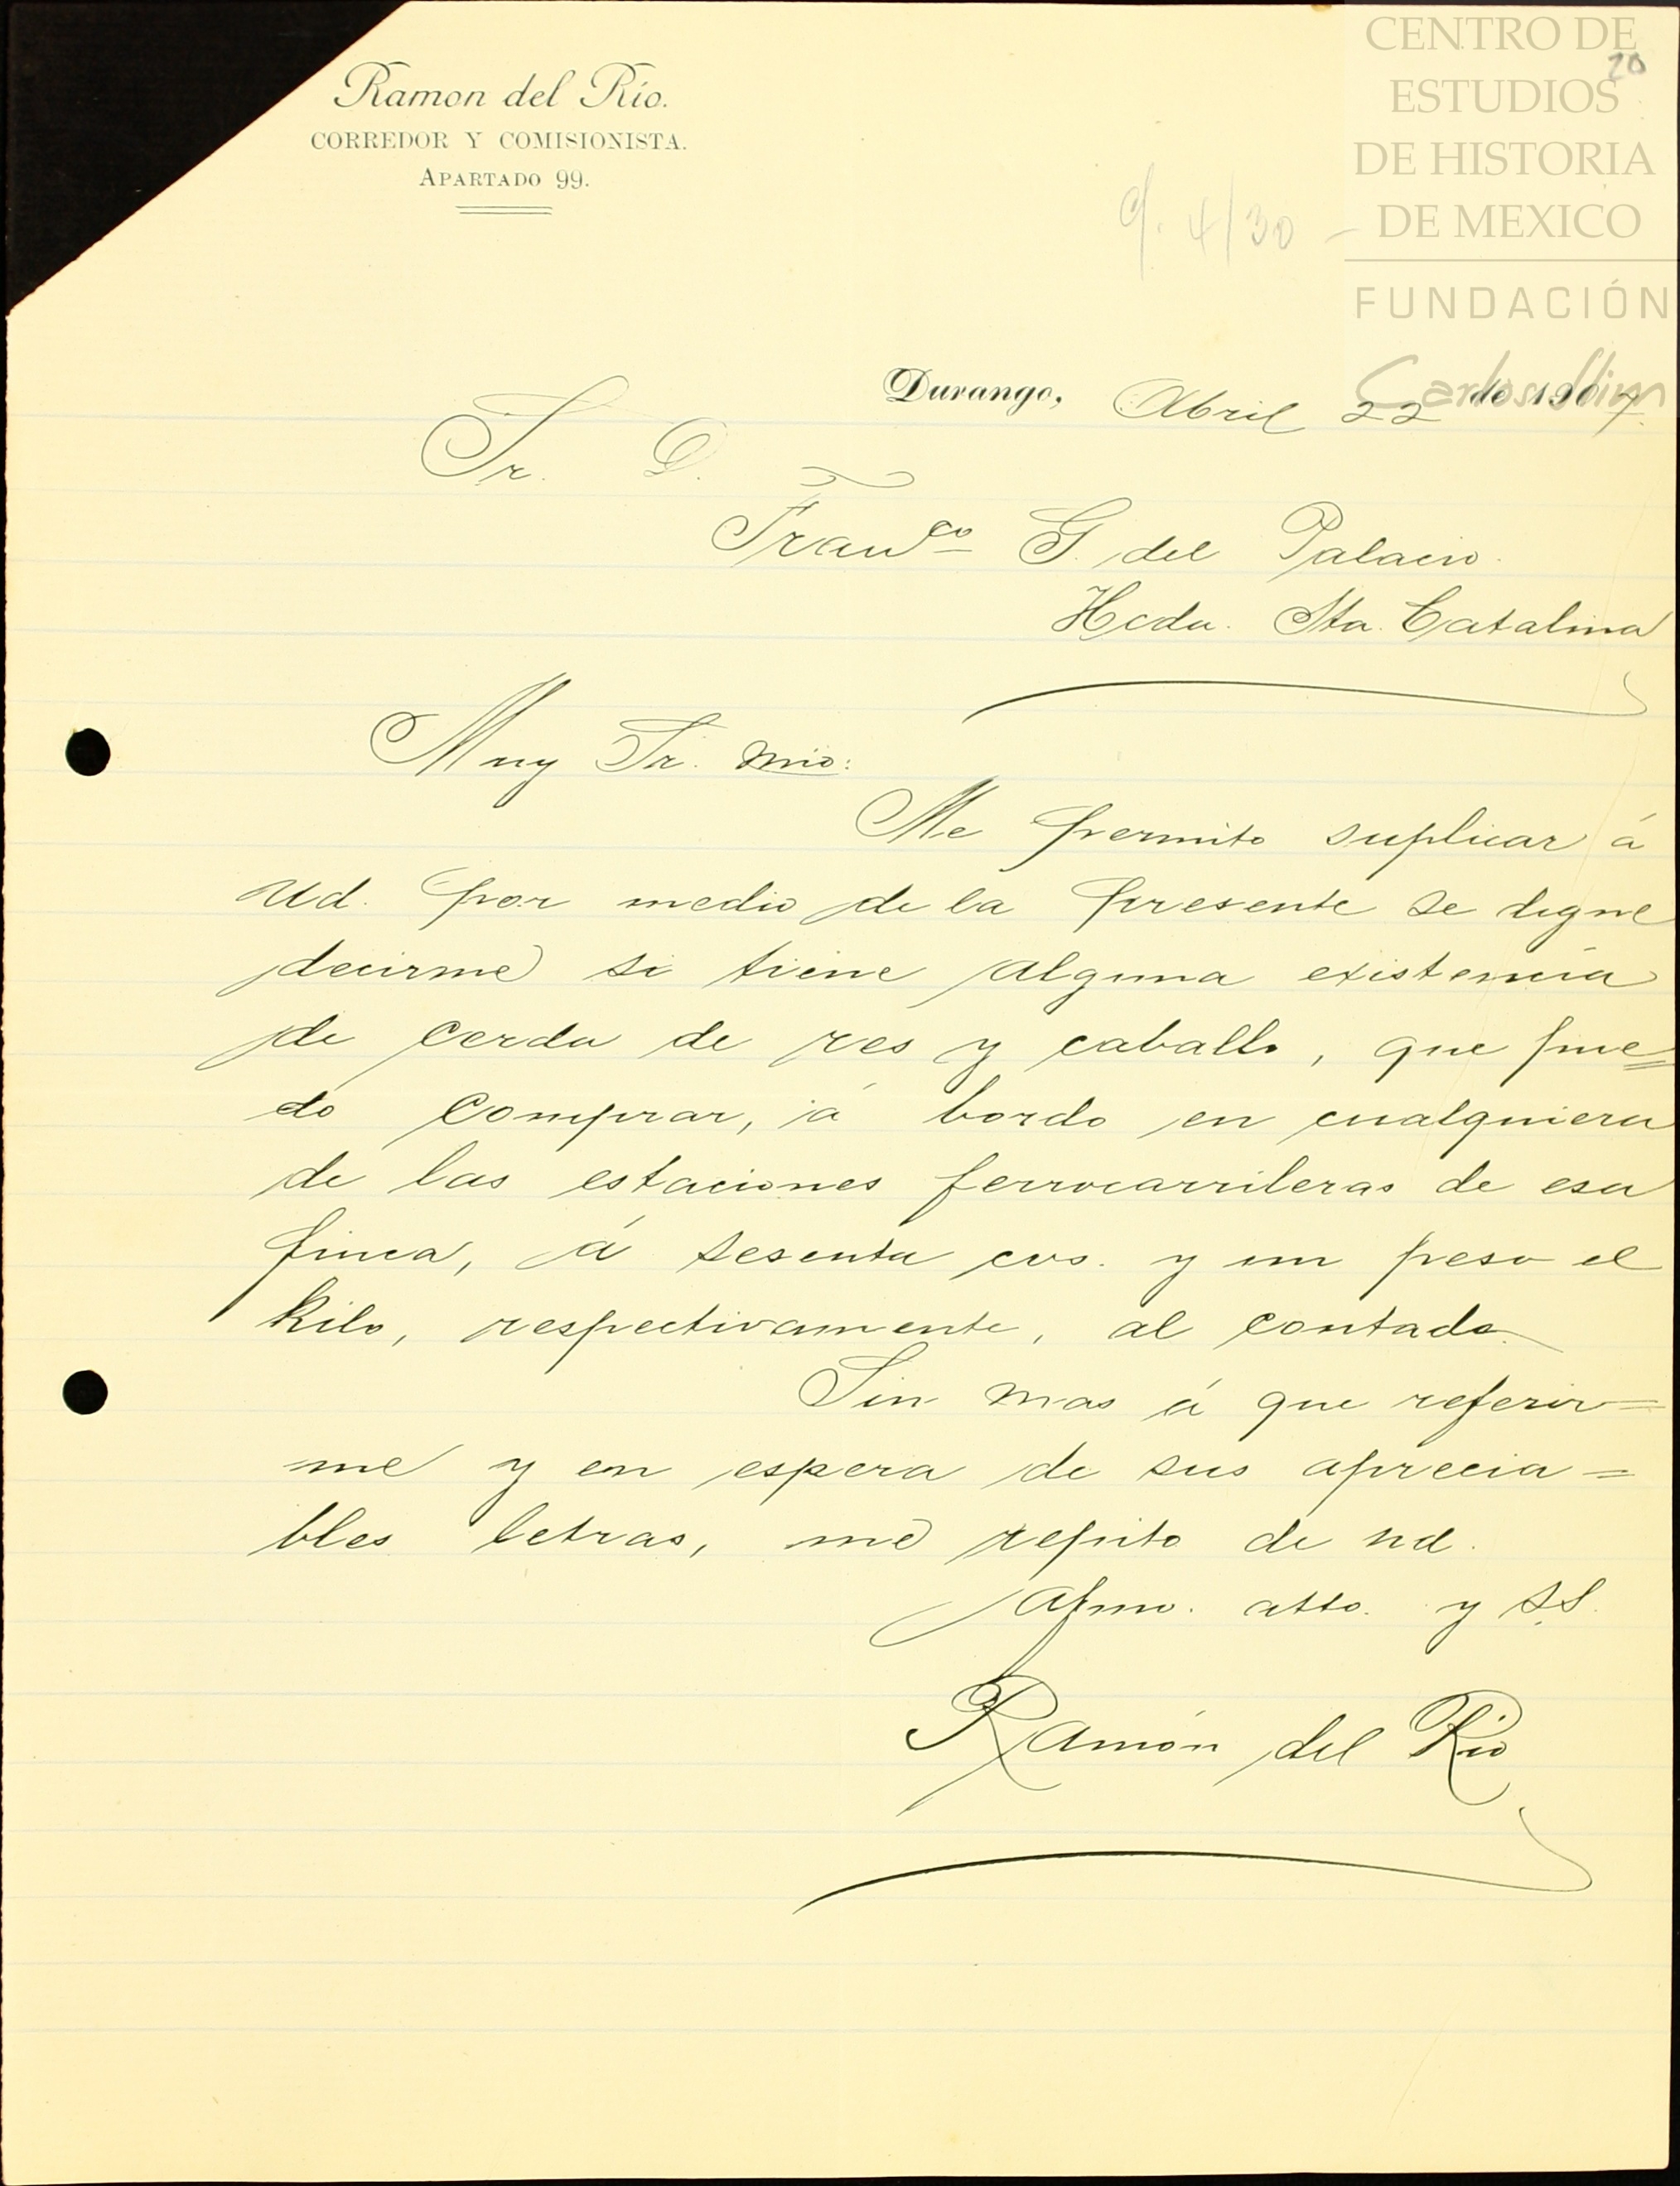 Ramon del Río.
CORREDOR Y COMISIONISTA.
APARTADO 99.
CENTRO DE
20
ESTUDIOS
DE HISTORIA
DE MEXICO
FUNDACIÓN
Carlos Slim
4/30
Durango, Abril 22 de 1907.
Sr. D.
Franco G. del Palacio.
Hcda. Sta. Catalina
Muy Sr. mio:
Me permito suplicar á
Ud. por medio de la presente se digne
decirme si tiene alguna existencia
de cerda de res y caballo, que pue=
do comprar, á bordo en cualquiera
de las estaciones ferrocarrileras de esa
finca, á sesenta cvs. y un peso el
kilo, respectivamente, al contado.
Sin mas á que referir=
me y en espera de sus aprecia=
bles letras, me repito de ud.
afmo. atto. y SS.
Ramón del Río